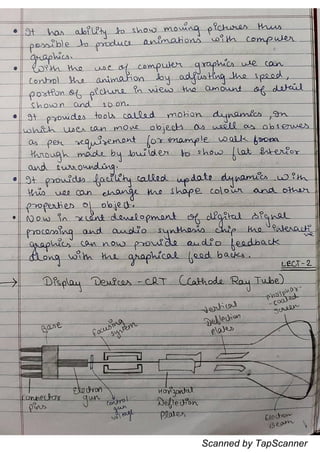 • It has ability to show moving pictures thus
possible to produce animations with computer
graphics.
• With the use of computer graphics we can
control the animation by adjusting the speed,
portion of picture in view the amount of detail
shown and so on.
• It provides tools called motion dynamics, In
which user can move objects as well as observes
as per requirement for example walk from
through made by builder to show flat interior
and surrounding.
• It provides facility called update dynamics. With
this we can change the shape colour and other
properties of object.
• Now in recent development of digital signal
processing and audio synthesis chip the interacti
graphics can now provide audio feedback
along with the graphical feed backs.
LECT-2
→ Display Devices - CRT (Cathode Ray Tube)
Base
Focusing
system
Vertical
Deflection
Plates
Phosphor-
coated
screen
Connector
pins
Electron
gun
control
gun
voltage
Horizontal
Deflection
Plates
Electron
Beam
Scanned by TapScanner